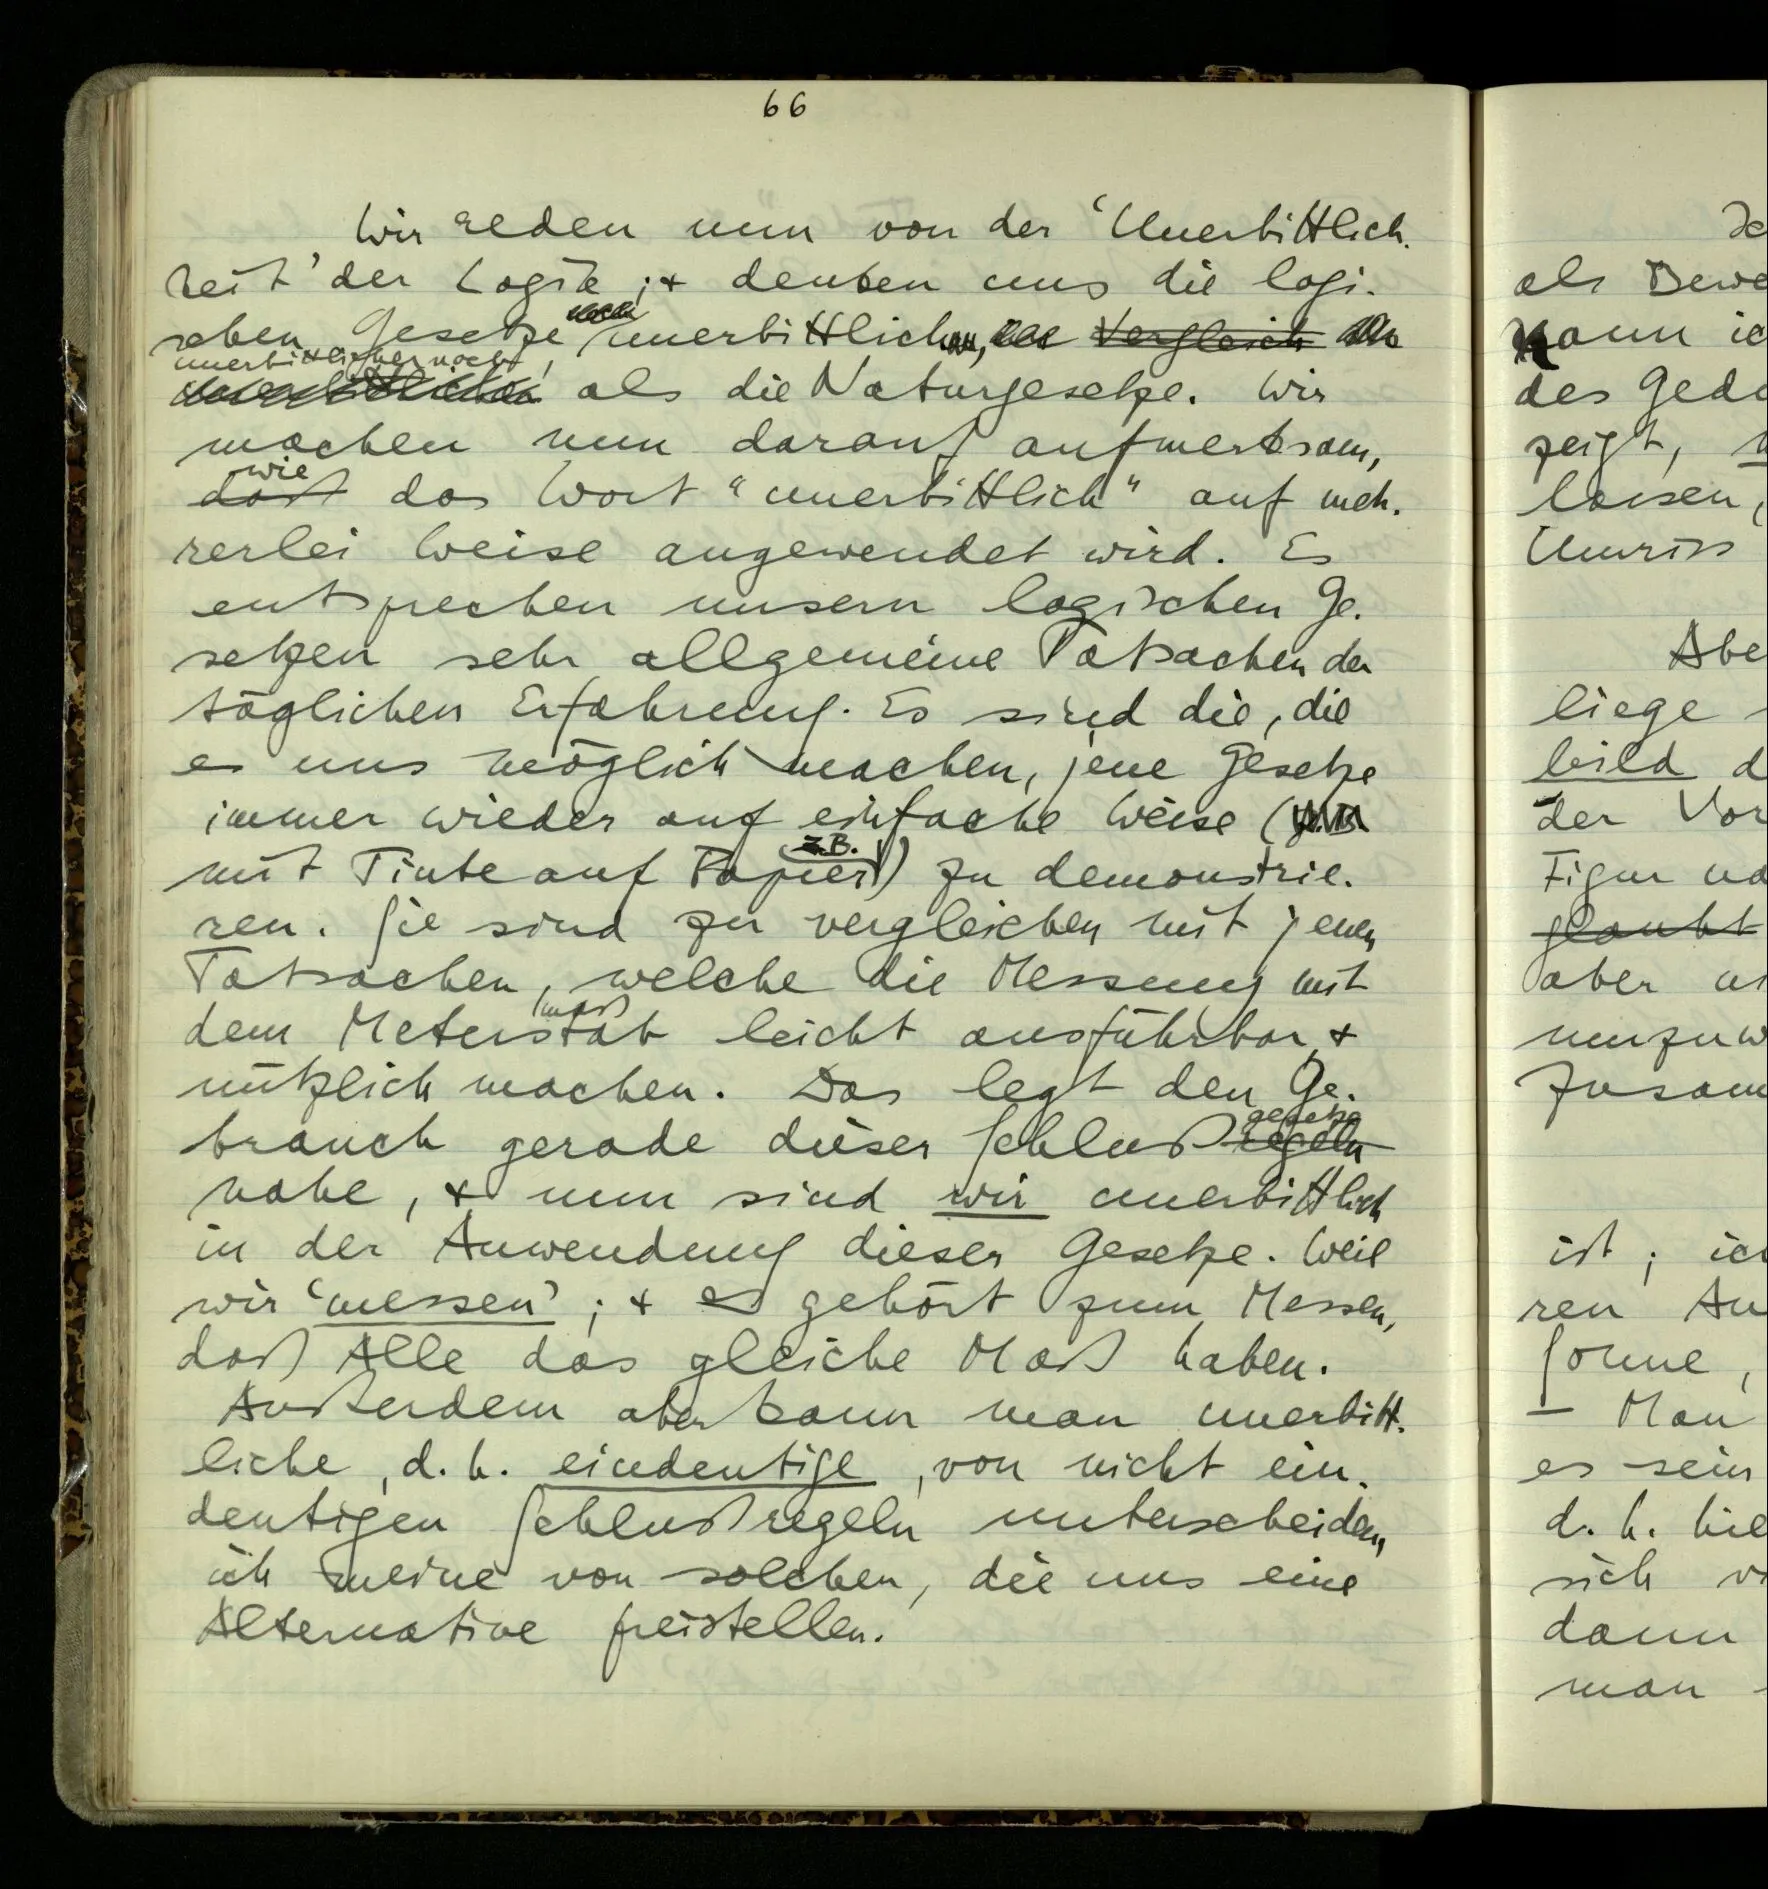 66
Wir reden nun von der ‘Unerbittlich-
keit’ der Logik; + denken uns die logi-
schen Gesetze unerbittlich, Vergleich
unerbittlicher noch,
als die Naturgesetze. Wir
machen nun darauf aufmerksam,
wie
daß das Wort “unerbittlich” auf meh-
rerlei Weise angewendet wird. Es
entsprechen unsern logischen Ge-
setzen sehr allgemeine Tatsachen der
täglichen Erfahrung. Es sind die, die
es uns möglich machen, jene Gesetze
immer wieder auf einfache Weise (
z.B.
mit Tinte auf Papier) zu demonstrie-
ren. Sie sind zu vergleichen mit jenen
Tatsachen, welche die Messung mit
maß
dem Meterstab leicht ausführbar +
nützlich machen. Das legt den Ge-
gesetze
brauch gerade dieser Schlußregeln
nahe, + nun sind wir unerbittlich
in der Anwendung dieser Gesetze. Weil
wir ‘messen’; + es gehört zum Messen,
daß Alle das gleiche Maß haben.
Außerdem aber kann man unerbitt-
liche, d.h. eindeutige, von nicht ein-
deutigen Schlußregeln unterscheiden,
ich meine von solchen, die uns eine
Alternative freistellen.
als
kann
des
zeigt,
lassen,
Umriss
liege
bild
der
Figur
glaubt
aber
ist;
ren
Sonne,
– Man
es sein
d.h.
sich
dann
man